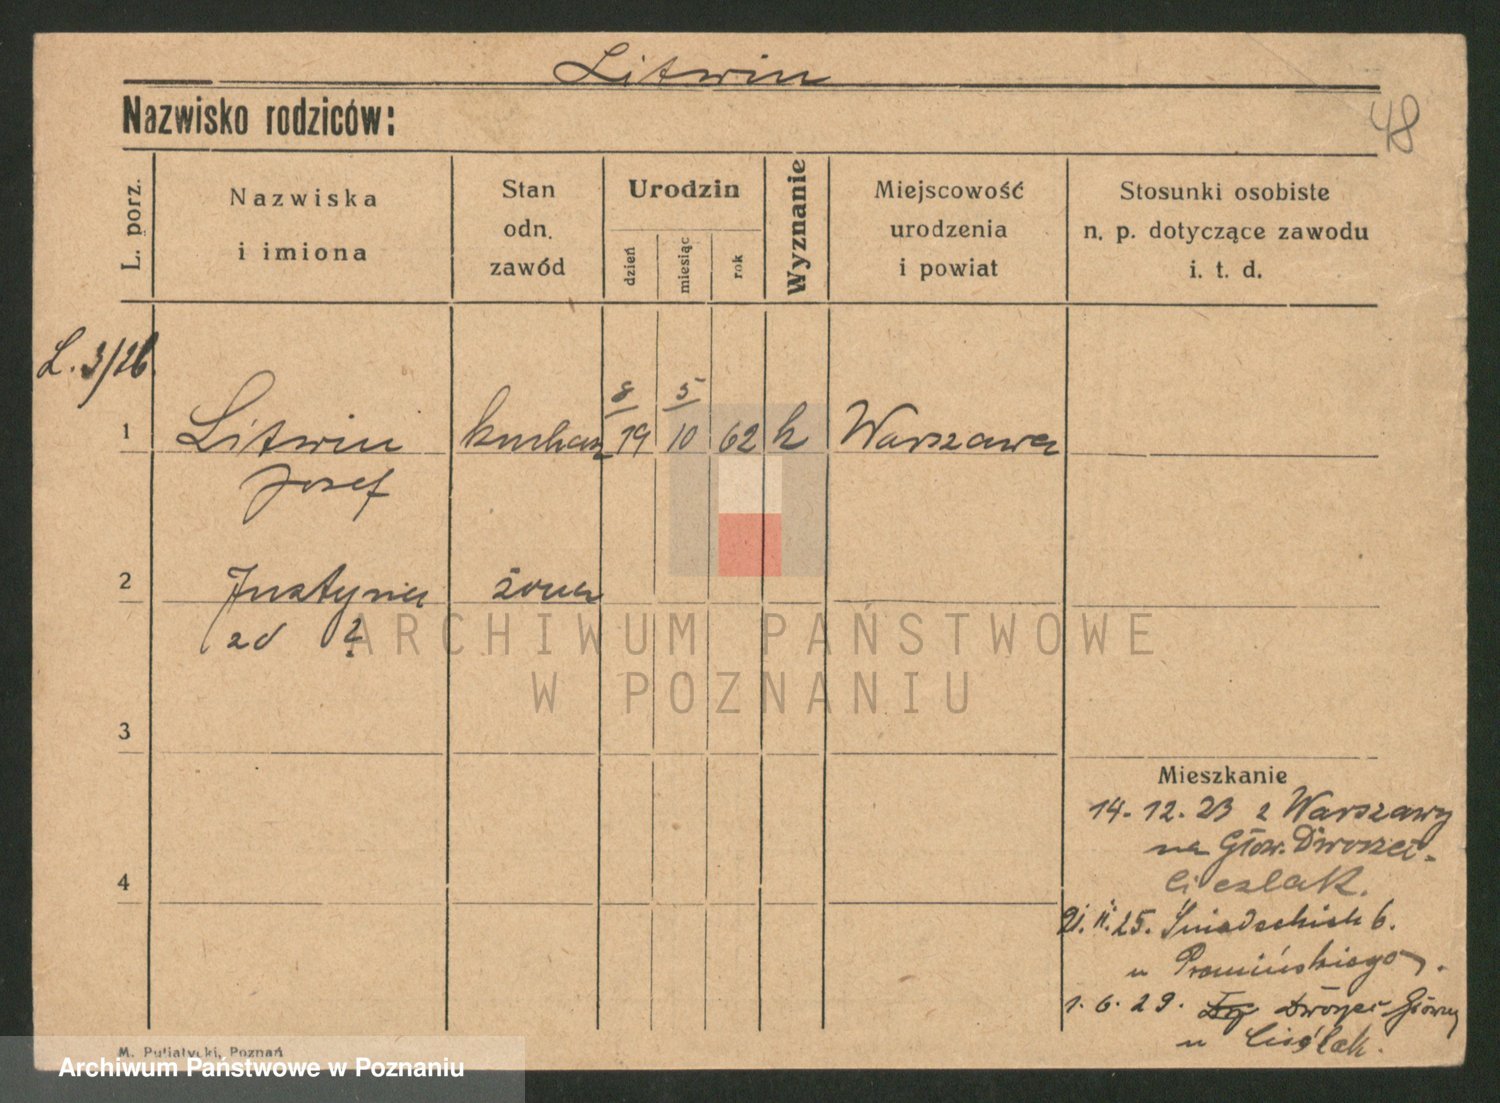 Litwin
Nazwisko rodziców:
48
L. porz.
Nazwiska
i imiona
Stan
odn.
zawód
Urodzin
dzień
miesiąc
rok
Wyznanie
Miejscowość
urodzenia
i powiat
Stosunki osobiste
n. p. dotyczące zawodu
i. t. d.
L. 3/26.
8 5
1 Litwin kucharz 19 10 62 k Warszawa
Josef
2 Justyna żona
zd ?
ARCHIWUM PAŃSTWOWE
W POZNANIU
3
Mieszkanie
14. 12. 23 z Warszawy
na Głow. Dworzec
4
Cieslak.
21. 11. 25. Śniadeckich 6.
u
1. 6. 29. Dworzec Główny
u Cieślak.
M. Putiatycki, Poznań
Archiwum Państwowe w Poznaniu